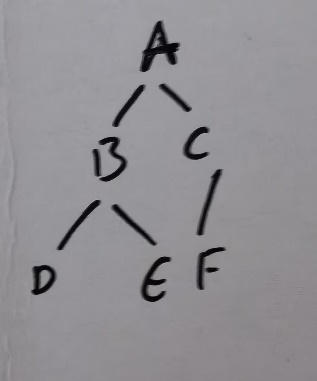 A
B C
D E F